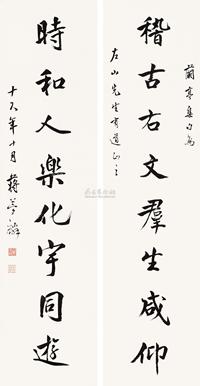 蘭亭集句為
稽古右文羣生咸仰
左山先生有道正之
時和人樂化宇同遊
十六年十月 蔣夢麟